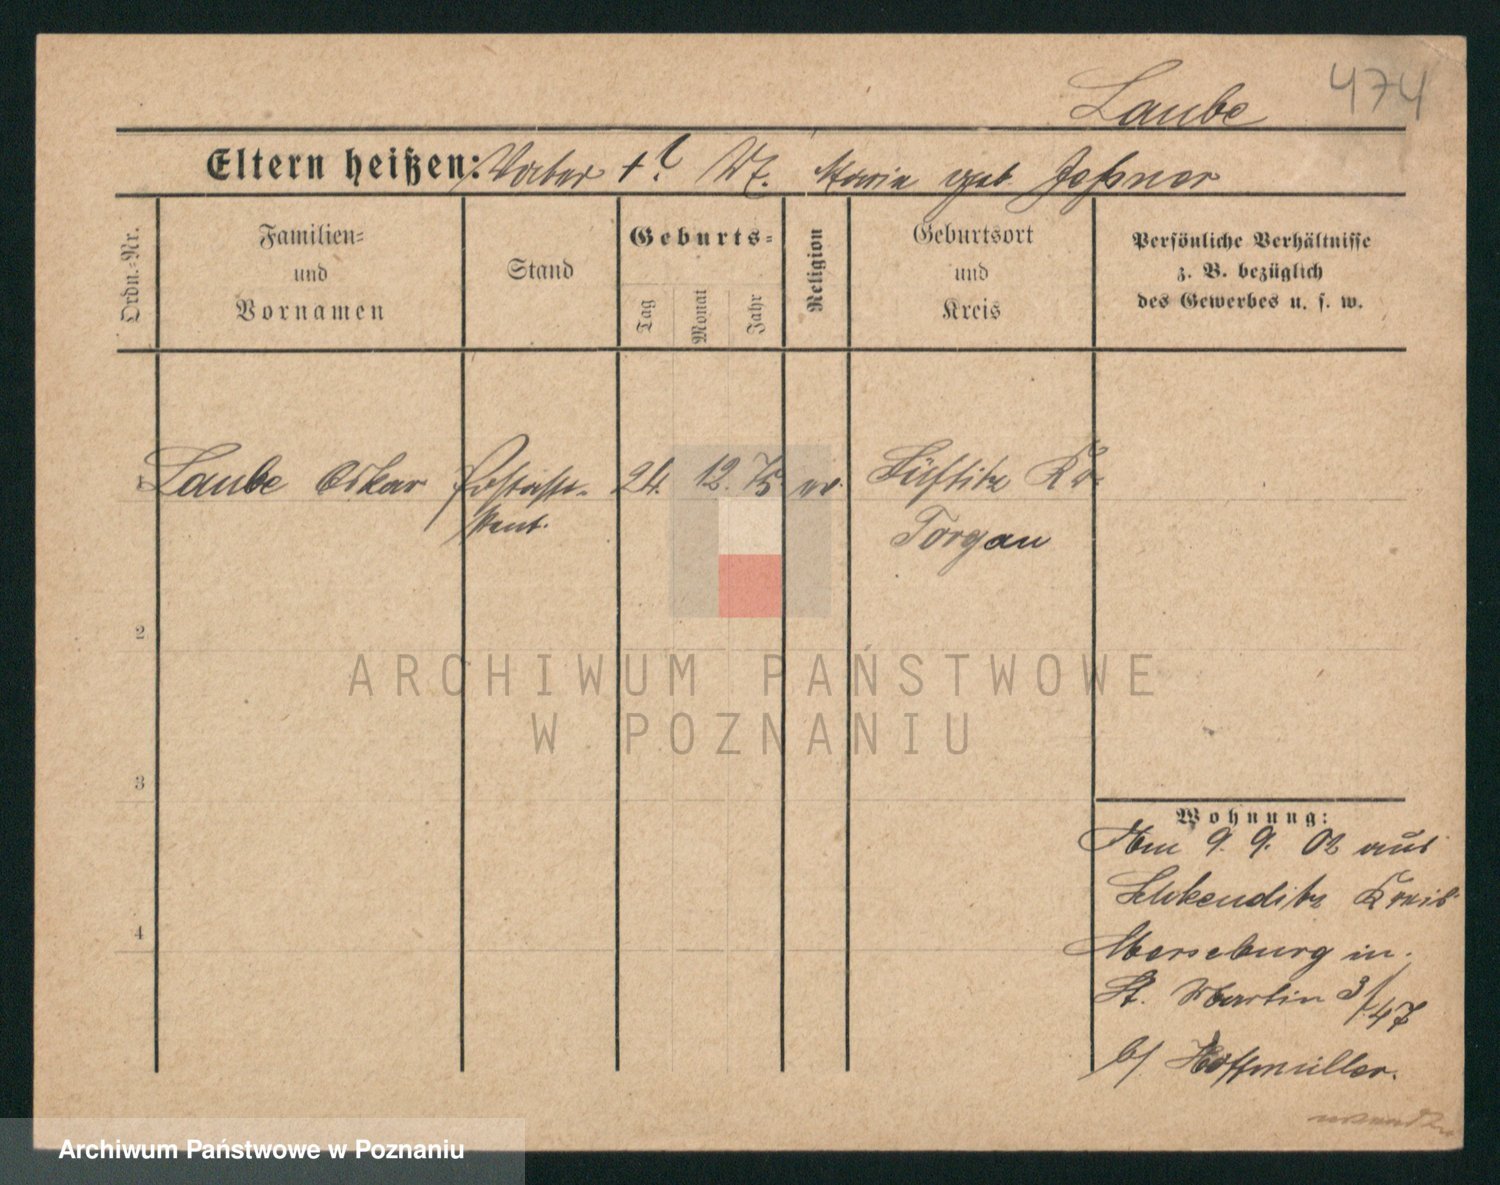 474
Laube
Eltern heißen: Vater †? M. Maria geb Jeßner
Ordn.-Nr.
Familien-
und
Vornamen
Stand
Geburts-
Tag
Monat
Jahr
Religion
Geburtsort
und
Kreis
Persönliche Verhältnisse
z. B. bezüglich
des Gewerbes u. s. w.
1
Laube Oskar Postassi- 24. 12. 75 ev. Kr.
stent. Torgau
2
ARCHIWUM PAŃSTWOWE
W POZNANIU
3
Wohnung:
Am 9. 9. 02 aus
Schkeuditz Kreis
4
Merseburg in
St. Martin 3/47
b/ Hoffmüller.
Archiwum Państwowe w Poznaniu